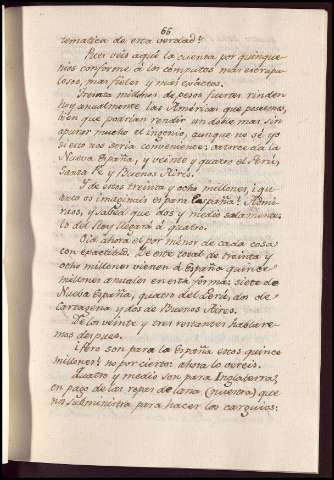 66
tematica de esta verdad?
Pues veis aquí la cuenta por quinque-
nios conforme á los cómputos mas escrupu-
losos, mas fieles y mas exâctos.
Treinta millones de pesos fuertes rinden
hoy anualmente las Américas que poseemos,
bien que podrian rendir un doble mas sin
apurar mucho el ingenio, aunque no sé yo
si esto nos seria conveniente: catorce da la
Nueva España, y veinte y quatro el Perú,
Santa Fé y Buenos Aires.
Y de estos treinta y ocho millones, ¿que
os imaginais es para España? Admi-
raos, y sabed que dos y medio solamente;
lo del Rey llegará á quatro.
Oid ahora el por menor de cada cosa
con exâctitud. De este total de treinta y
ocho millones vienen á España quince
millones anuales en esta forma: siete de
Nueva España, quatro del Perú, dos de
Cartagena y dos de Buenos Aires.
De los veinte y tres restantes hablare-
mos despues.
¿Pero son para la España estos quince
millones? no por cierto: ahora lo vereis.
Quatro y medio son para Inglaterra,
en pago de las ropas de lana (nuestra) que
nos subministra para hacer los carguios: